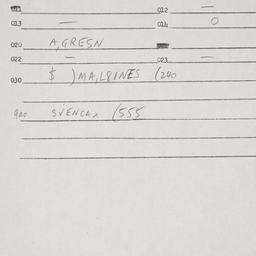 012 —
013 — 014 0
020 A,GRESN
022 — 023 —
030 $ ) MA,L8INES (240
900 SVENCAX (555